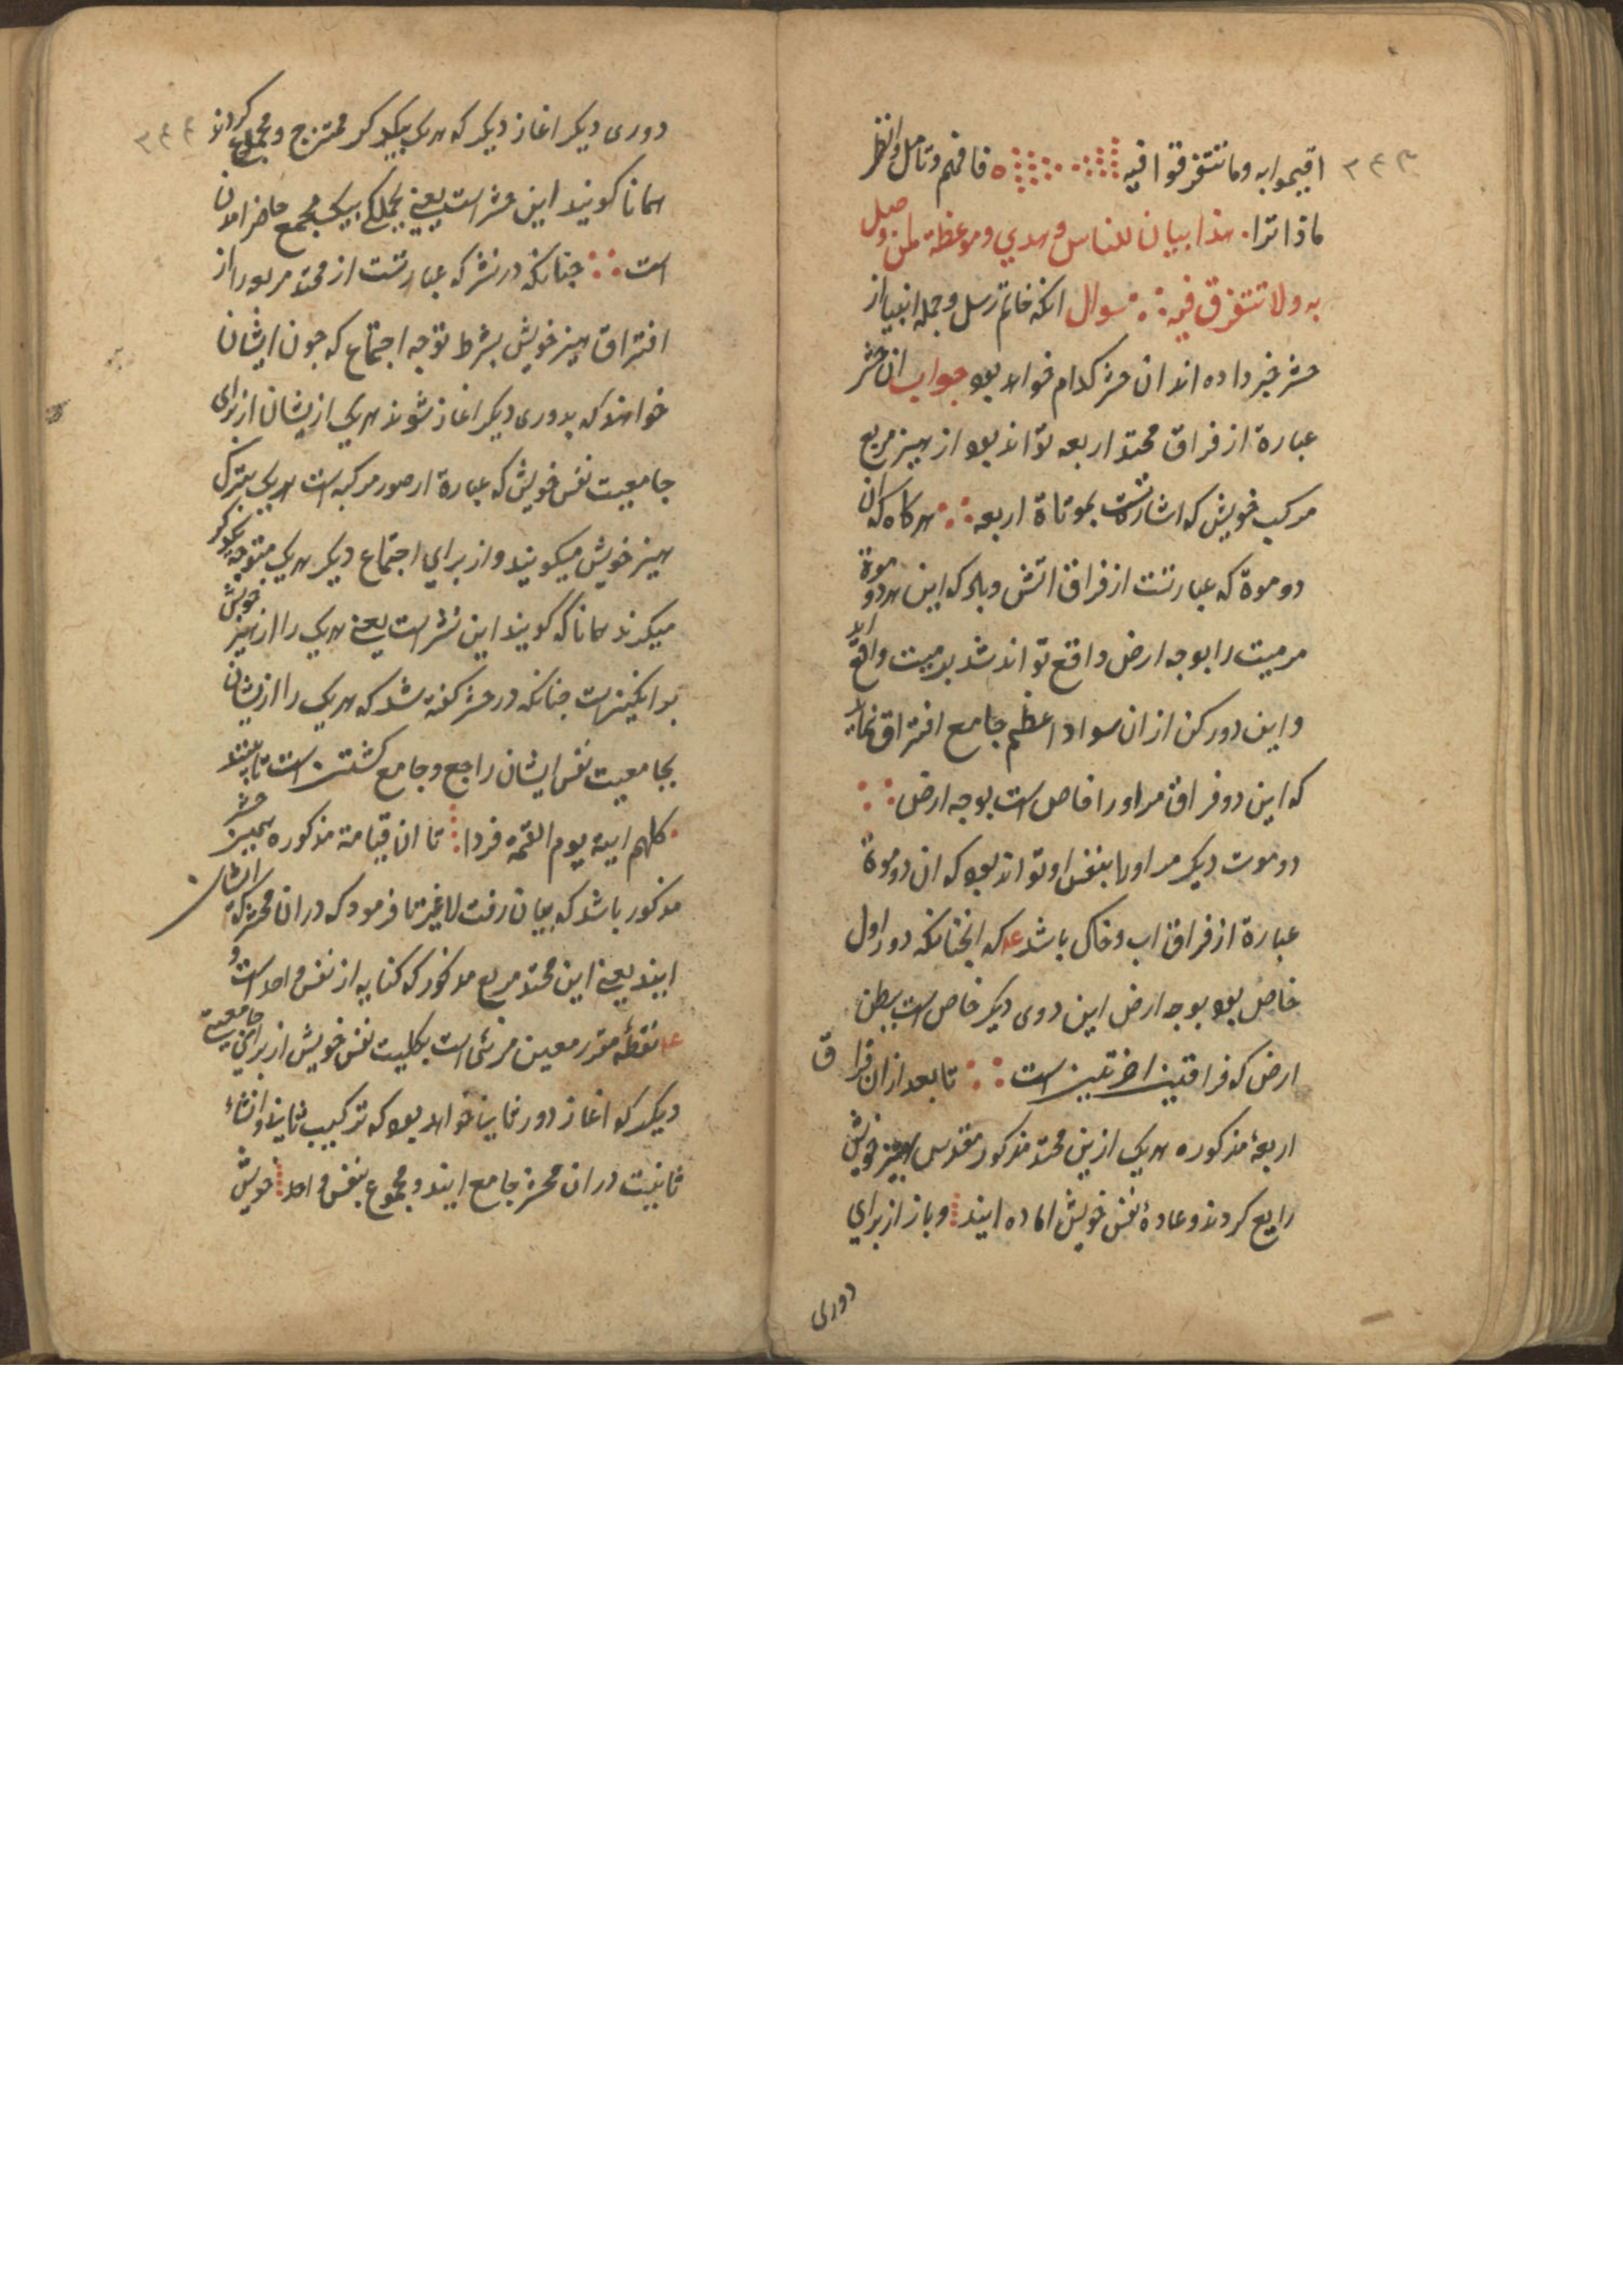 ۳۴۳
اقیموا به وما تتفرقوا فیه فافهم وتامل وانظر
ماذا ترا هذا بیان للناس وهدي وموعظة لمن وصل
به ولا تتفرق فیه سوال انکه خاتم رسل وجمله انبیا از
حشر خبر داده اند ان حشر کدام خواهد بود جواب ان حشر
عبارة از فراق محتد اربعه تواند بود از هیز مربع
مرکب خویش که اشارتست بموتاة اربعه هرکاه که ان
دو موة که عبارتست از فراق اتش وباد که این هر دو موة
مر میت را بوجه ارض واقع تواند شد بر میت واقع اید
واین دو رکن از ان سواد اعظم جامع افتراق نماید
که این دو فراق مر اورا خاص است بوجه ارض
دو موت دیکر مر اورا بنفس او تواند بود که ان دو موة
عبارة از فراق اب وخاک باشد که انچنانکه دور اول
خاص بود بوجه ارض این دوی دیکر خاص است ببطن
ارض که فراقتین اخرتین است تا بعد از ان فراق
اربعهٔ مذکوره هریک ازین محتد مذکور مقدس بهیز خویش
راجع کردند وعادهٔ نفس خویش اماده ایند وباز از برای
دوری
۳۴۴
دوری دیکر اغاز دیکر که هریک بیکدیکر ممتزج ومجموع کردند
همانا کویند این حشر است یعنی بجملکی بیک مجمع حاضر امدن
است چنانکه در نشر که عبارتست از محتد مربع را از
افتراق هیز خویش بشرط توجه اجتماع که چون ایشان
خواهند که بدوری دیکر اغاز شوند هریک ازیشان از برای
جامعیت نفس خویش که عبارة از صور مرکبه است هریک بترک
هیز خویش میکویند واز برای اجتماع دیکر هریک متوجه یکدیکر
میکردند همانا که کویند این نشر است یعنی هریک را از هیز خویش
بر انکیزست چنانکه در حشر کفته شد که هریک را ازیشان
بجامعیت نفس ایشان راجع وجامع کشتن است تا بینند
کلهم اتیه یوم القیمة فردا تا ان قیامة مذکوره همین حشر
مذکور باشد که بیان رفت لاغیر تا فرمود که در ان محشر که ایشان
ایند یعنی این محتد مربع مذکور که کنایه از نفس واحد است و
نقطهٔ مقرر معین مرئی است بکلیت نفس خویش از برای جامعیت
دیکر که اغاز دور ثانی خواهد بود که ترکیب نمایند وانشاء
ثانیت در ان محشر جامع ایند ومجموع بنفس واحد خویش